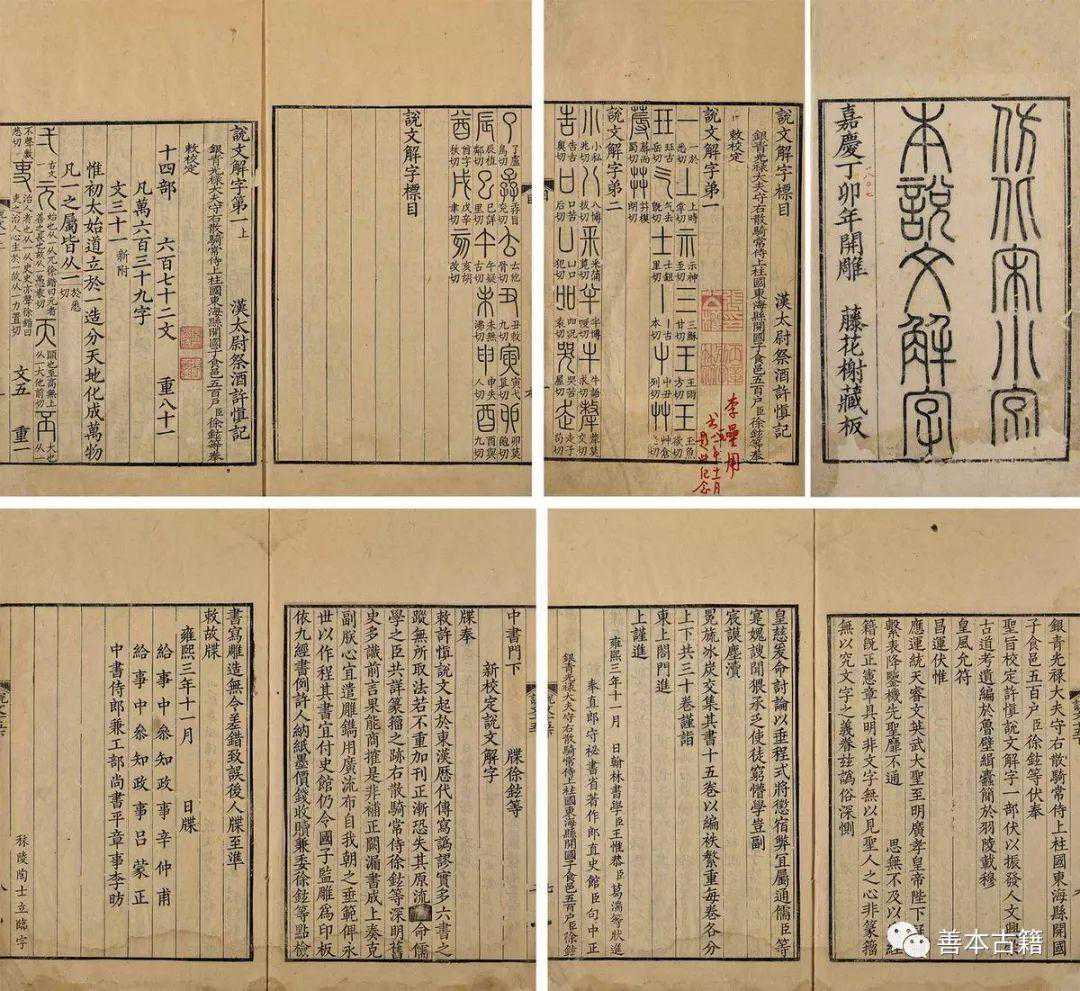 仿北宋小字
本說文解字
嘉慶丁卯年開雕　藤花榭藏板
說文解字標目　漢太尉祭酒許慎記
銀青光祿大夫守右散騎常侍上柱國東海縣開國子食邑五百戶臣徐鉉等奉
敕校定
說文解字弟一
一於悉切 丄時掌切 示神至切 三穌甘切 王雨方切 玉魚欲切
玨古岳切 气去气切 士鉏里切 丨古本切 屮丑列切 艸倉老切
蓐而蜀切 茻模朗切
說文解字弟二
小私兆切 八博拔切 釆蒲莧切 半博幔切 牛語求切 犛莫交切
告古奧切 口苦后切 凵口犯切 吅況袁切 哭苦屋切 走子苟切
了盧鳥切 孨旨兗切 𠫓他骨切 丑敕九切 寅弋真切 卯莫飽切
辰植鄰切 巳詳里切 午疑古切 未無沸切 申失人切 酉與久切
酋字秋切 戌辛聿切 亥胡改切
說文解字標目
說文解字第一上　漢太尉祭酒許慎記
銀青光祿大夫守右散騎常侍上柱國東海縣開國子食邑五百戶臣徐鉉等奉
敕校定
十四部　六百七十二文　重八十一
凡萬六百三十九字
文三十一新附
一惟初太始道立於一造分天地化成萬物
凡一之屬皆从一於悉切
文五　重一
銀青光祿大夫守右散騎常侍上柱國東海縣開國
子食邑五百戶臣徐鉉等伏奉
聖旨校定許慎說文解字一部伏以振發人文興
古道考遺編於魯壁緝蠹簡於羽陵載穆
皇風允符
昌運伏惟
應運統天睿文英武大聖至明廣孝皇帝陛下
繫表降鑒機先聖靡不通　思無不及以
籍旣正憲章具明非文字無以見聖人之心非篆籀
無以究文字之義眷茲譌俗深惻
皇慈爰命討論以垂程式將懲宿弊宜屬通儒臣等
寔媿謏聞猥承乏使徒窮懵學豈副
宸謨塵瀆
冕旒冰炭交集其書十五卷以編袟繁重每卷各分
上下共三十卷謹詣
東上閤門進
上謹進
雍熙三年十一月　日翰林書學臣王惟恭臣葛湍等狀進
奉直郎守祕書省著作郎直史館臣句中正
銀青光祿大夫守右散騎常侍上柱國東海縣開國子食邑五百戶臣徐鉉
中書門下　牒徐鉉等
新校定說文解字
牒奉
敕許慎說文起於東漢歷代傳寫譌謬實多六書之
蹤無所取法若不重加刊正漸恐失其原流命儒
學之臣共詳篆籀之跡右散騎常侍徐鉉等深明舊
史多識前言果能商搉是非補正闕漏書成上奏克
副朕心宜遣雕鐫用廣流布自我朝之垂範俾永
世以作程其書宜付史館仍令國子監雕爲印板
依九經書例許人納紙墨價錢收贖兼委徐鉉等點檢
書寫雕造無令差錯致誤後人牒至準
敕故牒
雍熙三年十一月　日牒
給事中參知政事辛仲甫
給事中參知政事呂蒙正
中書侍郎兼工部尚書平章事李昉
秣陵陶士立臨字
善本古籍